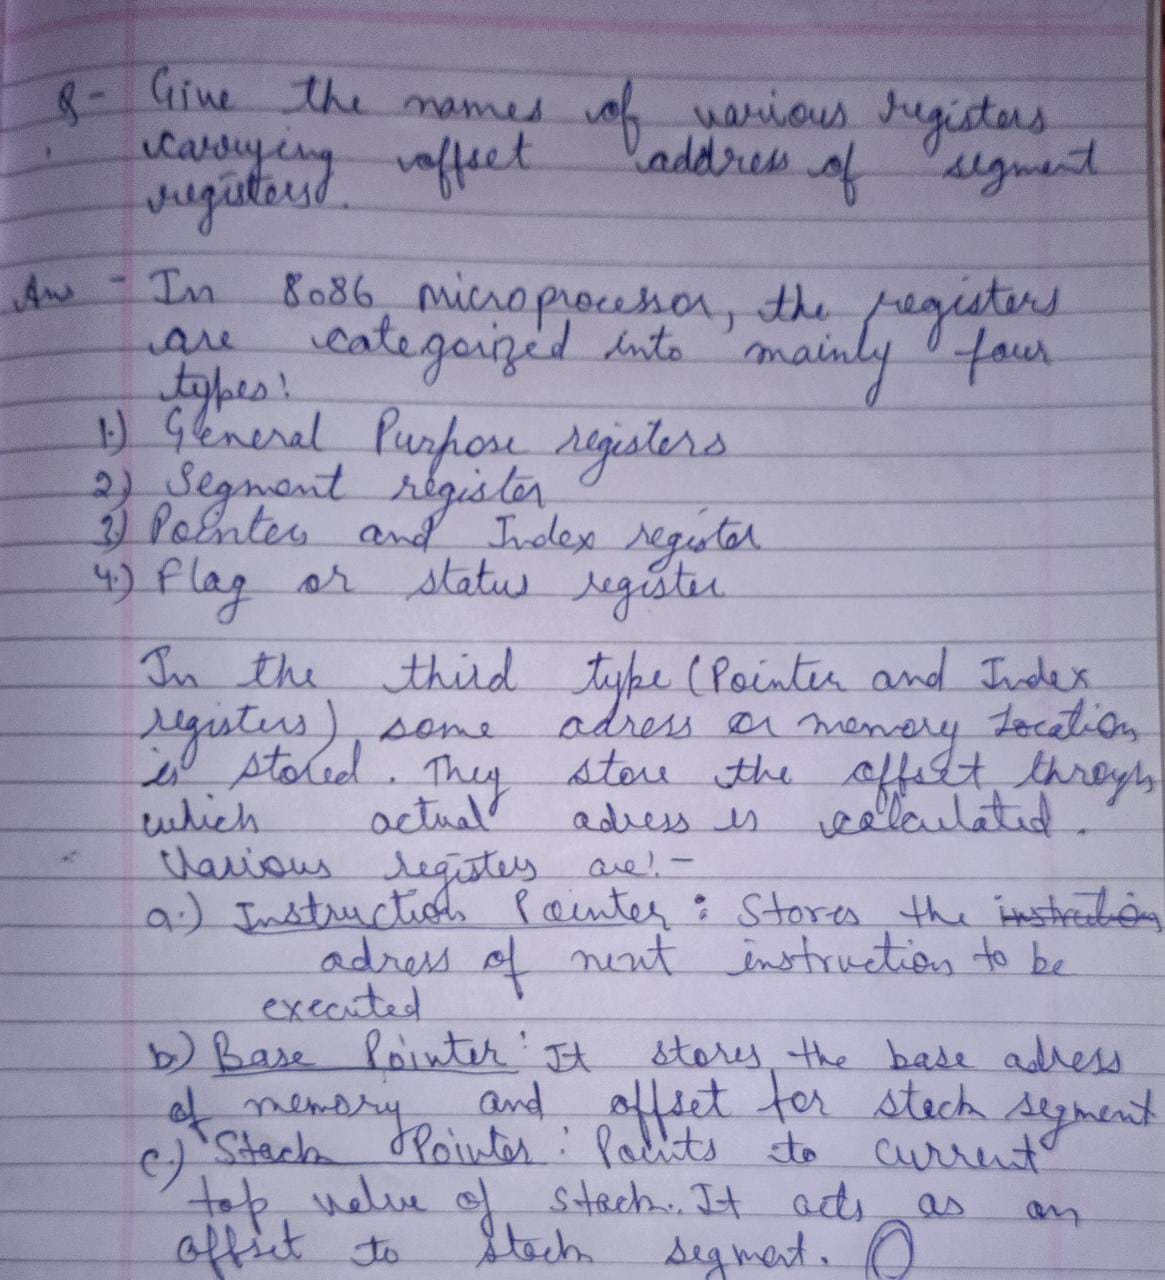 Q- Give the names of various registers
carrying offset address of segment
registers.
Ans - In 8086 microprocessor, the registers
are categorized into mainly four
types:
1.) General Purpose registers
2) Segment register
3) Pointer and Index register
4.) Flag or status register
In the third type (Pointer and Index
registers) some adress or memory location
is stored. They store the offset throgh
which actual adress is calculated.
Various registers are:-
a.) Instruction Pointer : Stores the instruction
adress of next instruction to be
executed
b) Base Pointer : It stores the base adress
of memory and offset for stack segment
c.) Stack Pointer : Points to current
top value of stack. It acts as an
offset to stack segment.